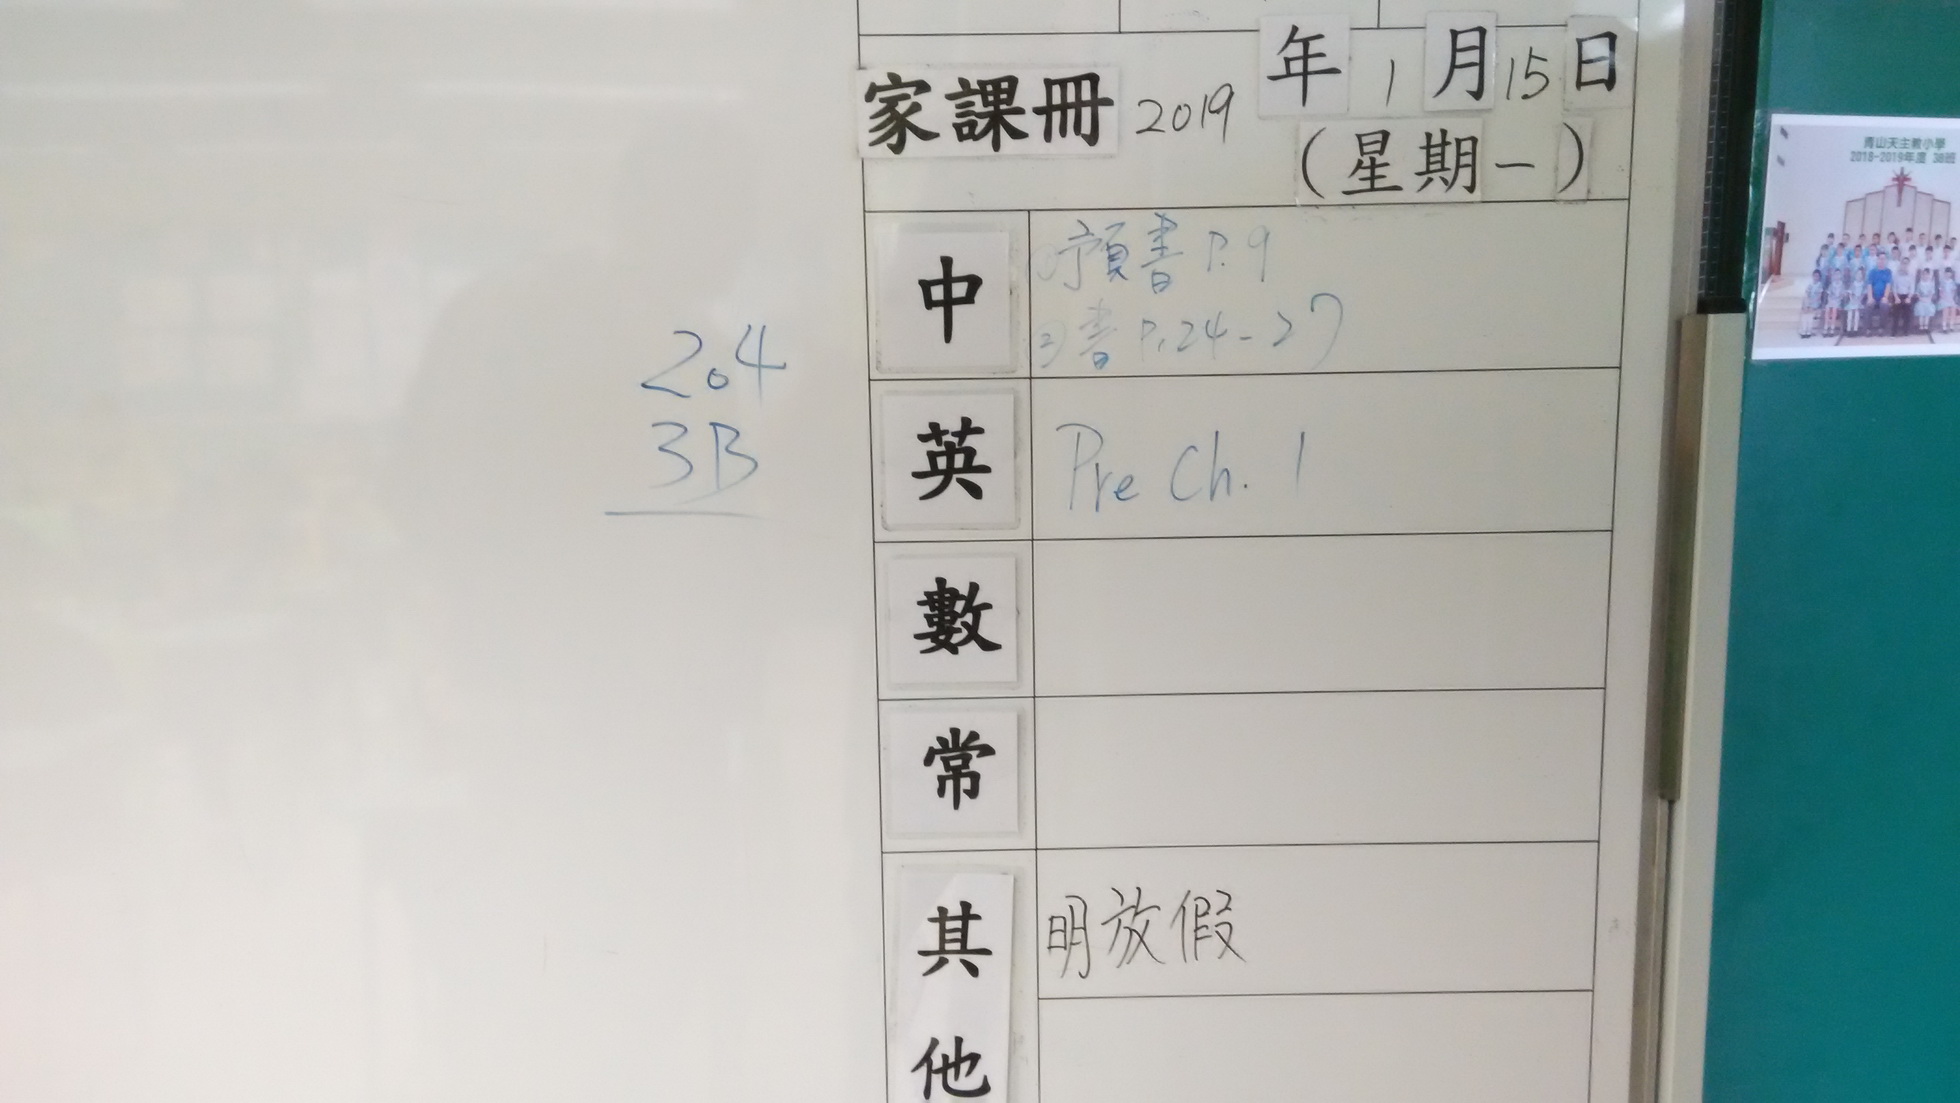 家課冊 2019 年 1 月 15 日
(星期一)
中
①預書 P.9
②書 P.24-27
英
Pre Ch. 1
數
常
其他
明放假
2.4
3B
青山天主教小學
2018-2019年度 3B班